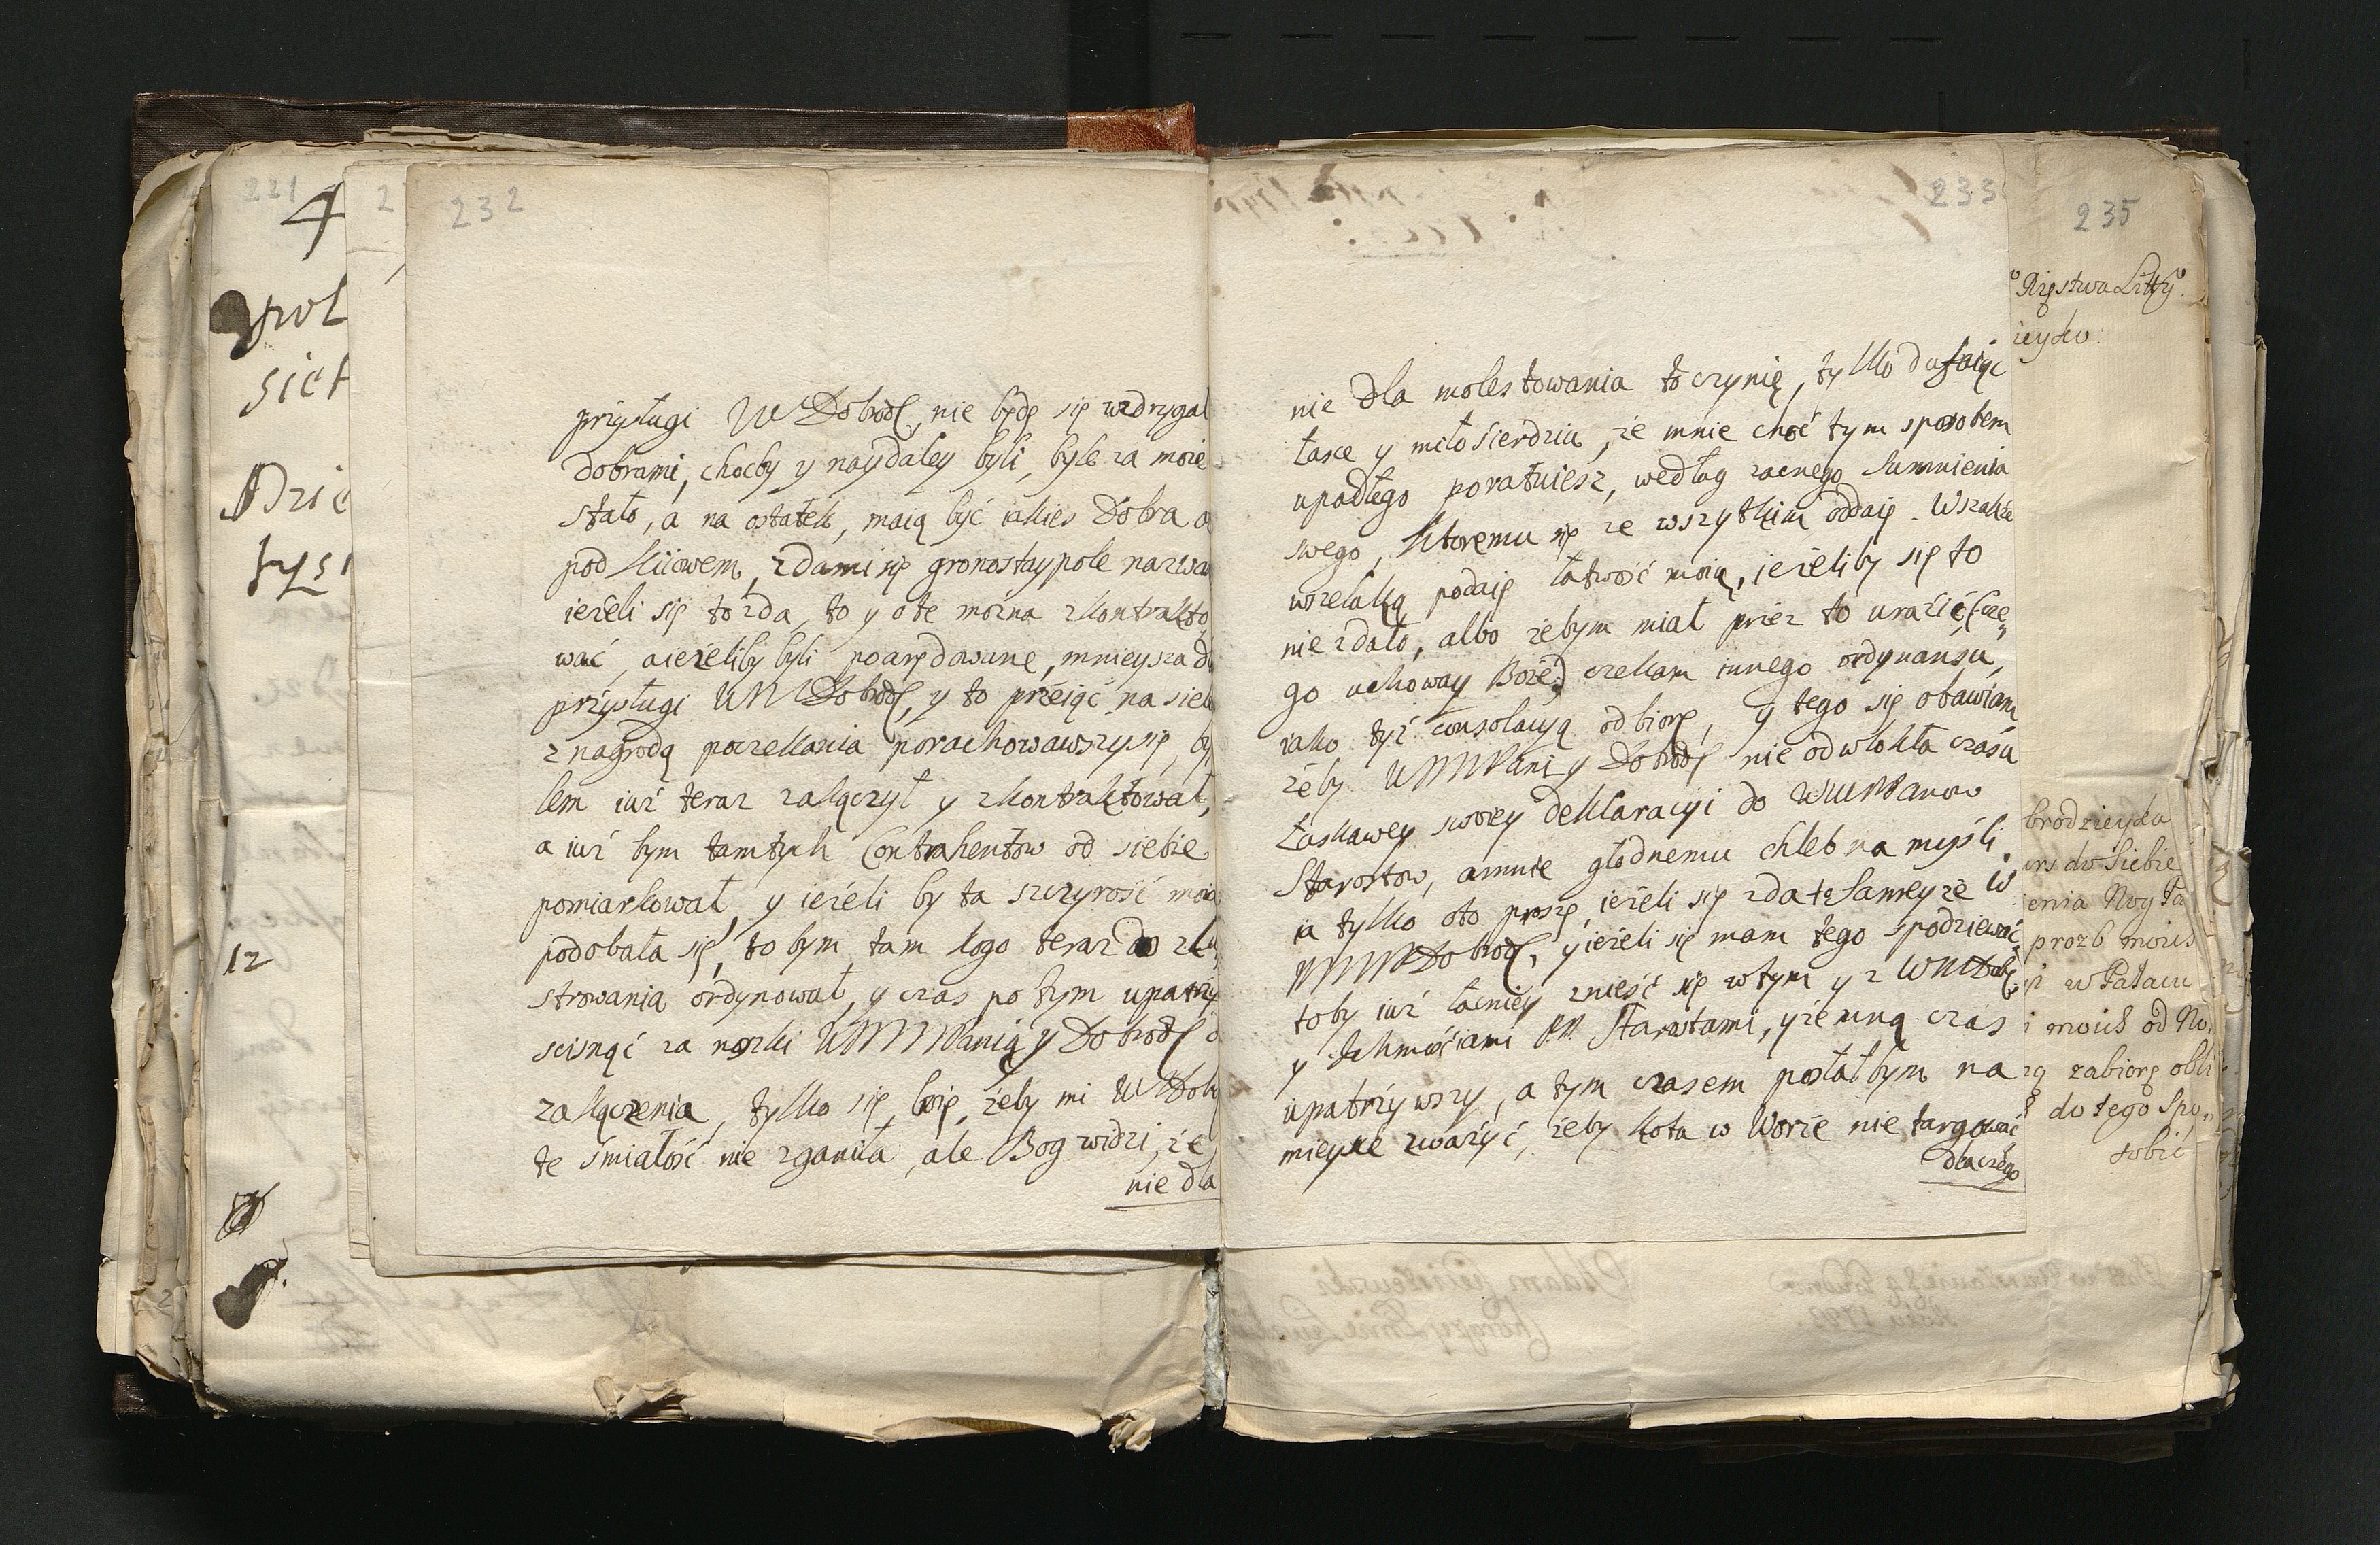 232
przysługi W Dobrodz, nie będę się wzdrygał
Dobrami, choćby y naydaley byli, byle za moie
stało, a na ostatek, maią być iakies Dobra
pod Kiiowem, zdami się gronostaypole nazwa
ieżeli się to zda, to y o te można zkontrakto
wać, aieżeliby byli poarędowane, mnieysza
przysługi WM Dobrodz, y to przeiąć na sieb
z nagrodą poczekania porachowawszy się, by
lem iuż teraz zakączył y zkontraktował,
a iuż bym tamtych Contrahentow od siebie
pomiarkował, y ieżeli by ta szczyrość moia
podobała się, to bym tam kogo teraz do zlu
strowania ordynował, y czas po tym upatrzy
scisnąć za nozki WMMPanią y Dobrodz
zakączenia, tylko się boię, żeby mi W Dob
te śmiałość nie zganiła, ale Bog widzi, że
nie dla
233
nie dla molestowania to czynię, tylko dufaiąc
łasce y miłosierdziu, że mnie choć tym sposobem
upadłego poratuiesz, według zacnego Sumnienia
swego, ktoremu się ze wszytkim oddaię. Wszakże
wszelaką podaię łatwość moią, ieżeliby się to
nie zdało, albo żebym miał przez to urazić (cze
go uchoway Boże) czekam innego ordynansu,
iako tyż consolacyą odbiorę, y tego się obawiam
żeby WMMPani y Dobrodz nie odwlokła czasu
łaskawey swoiey deklaracyi do WMMPanow
Starostow, amnie głodnemu chleb na myśli
ia tylko oto proszę, ieżeli się zda te Samey że W
MMPDobrodz, y ieżeli się mam tego spodziewać
toby iuż łacniey znieść się wtym y z WMDob
y Ichmościami PP. Starostami, y ze mną czas
upatrzywszy, a tym czasem posłałbym na
mieysce zważyć, żeby kota w Worze nie targować
dlaczego
235
Xięstwa Litt
ieyko
brodzieyka
do Siebie
enia
prozb moich
w Pałacu
moich od
zabiorę obli
do tego Spo
sobić
221
4
pol
siet
Dzie
tysi
12